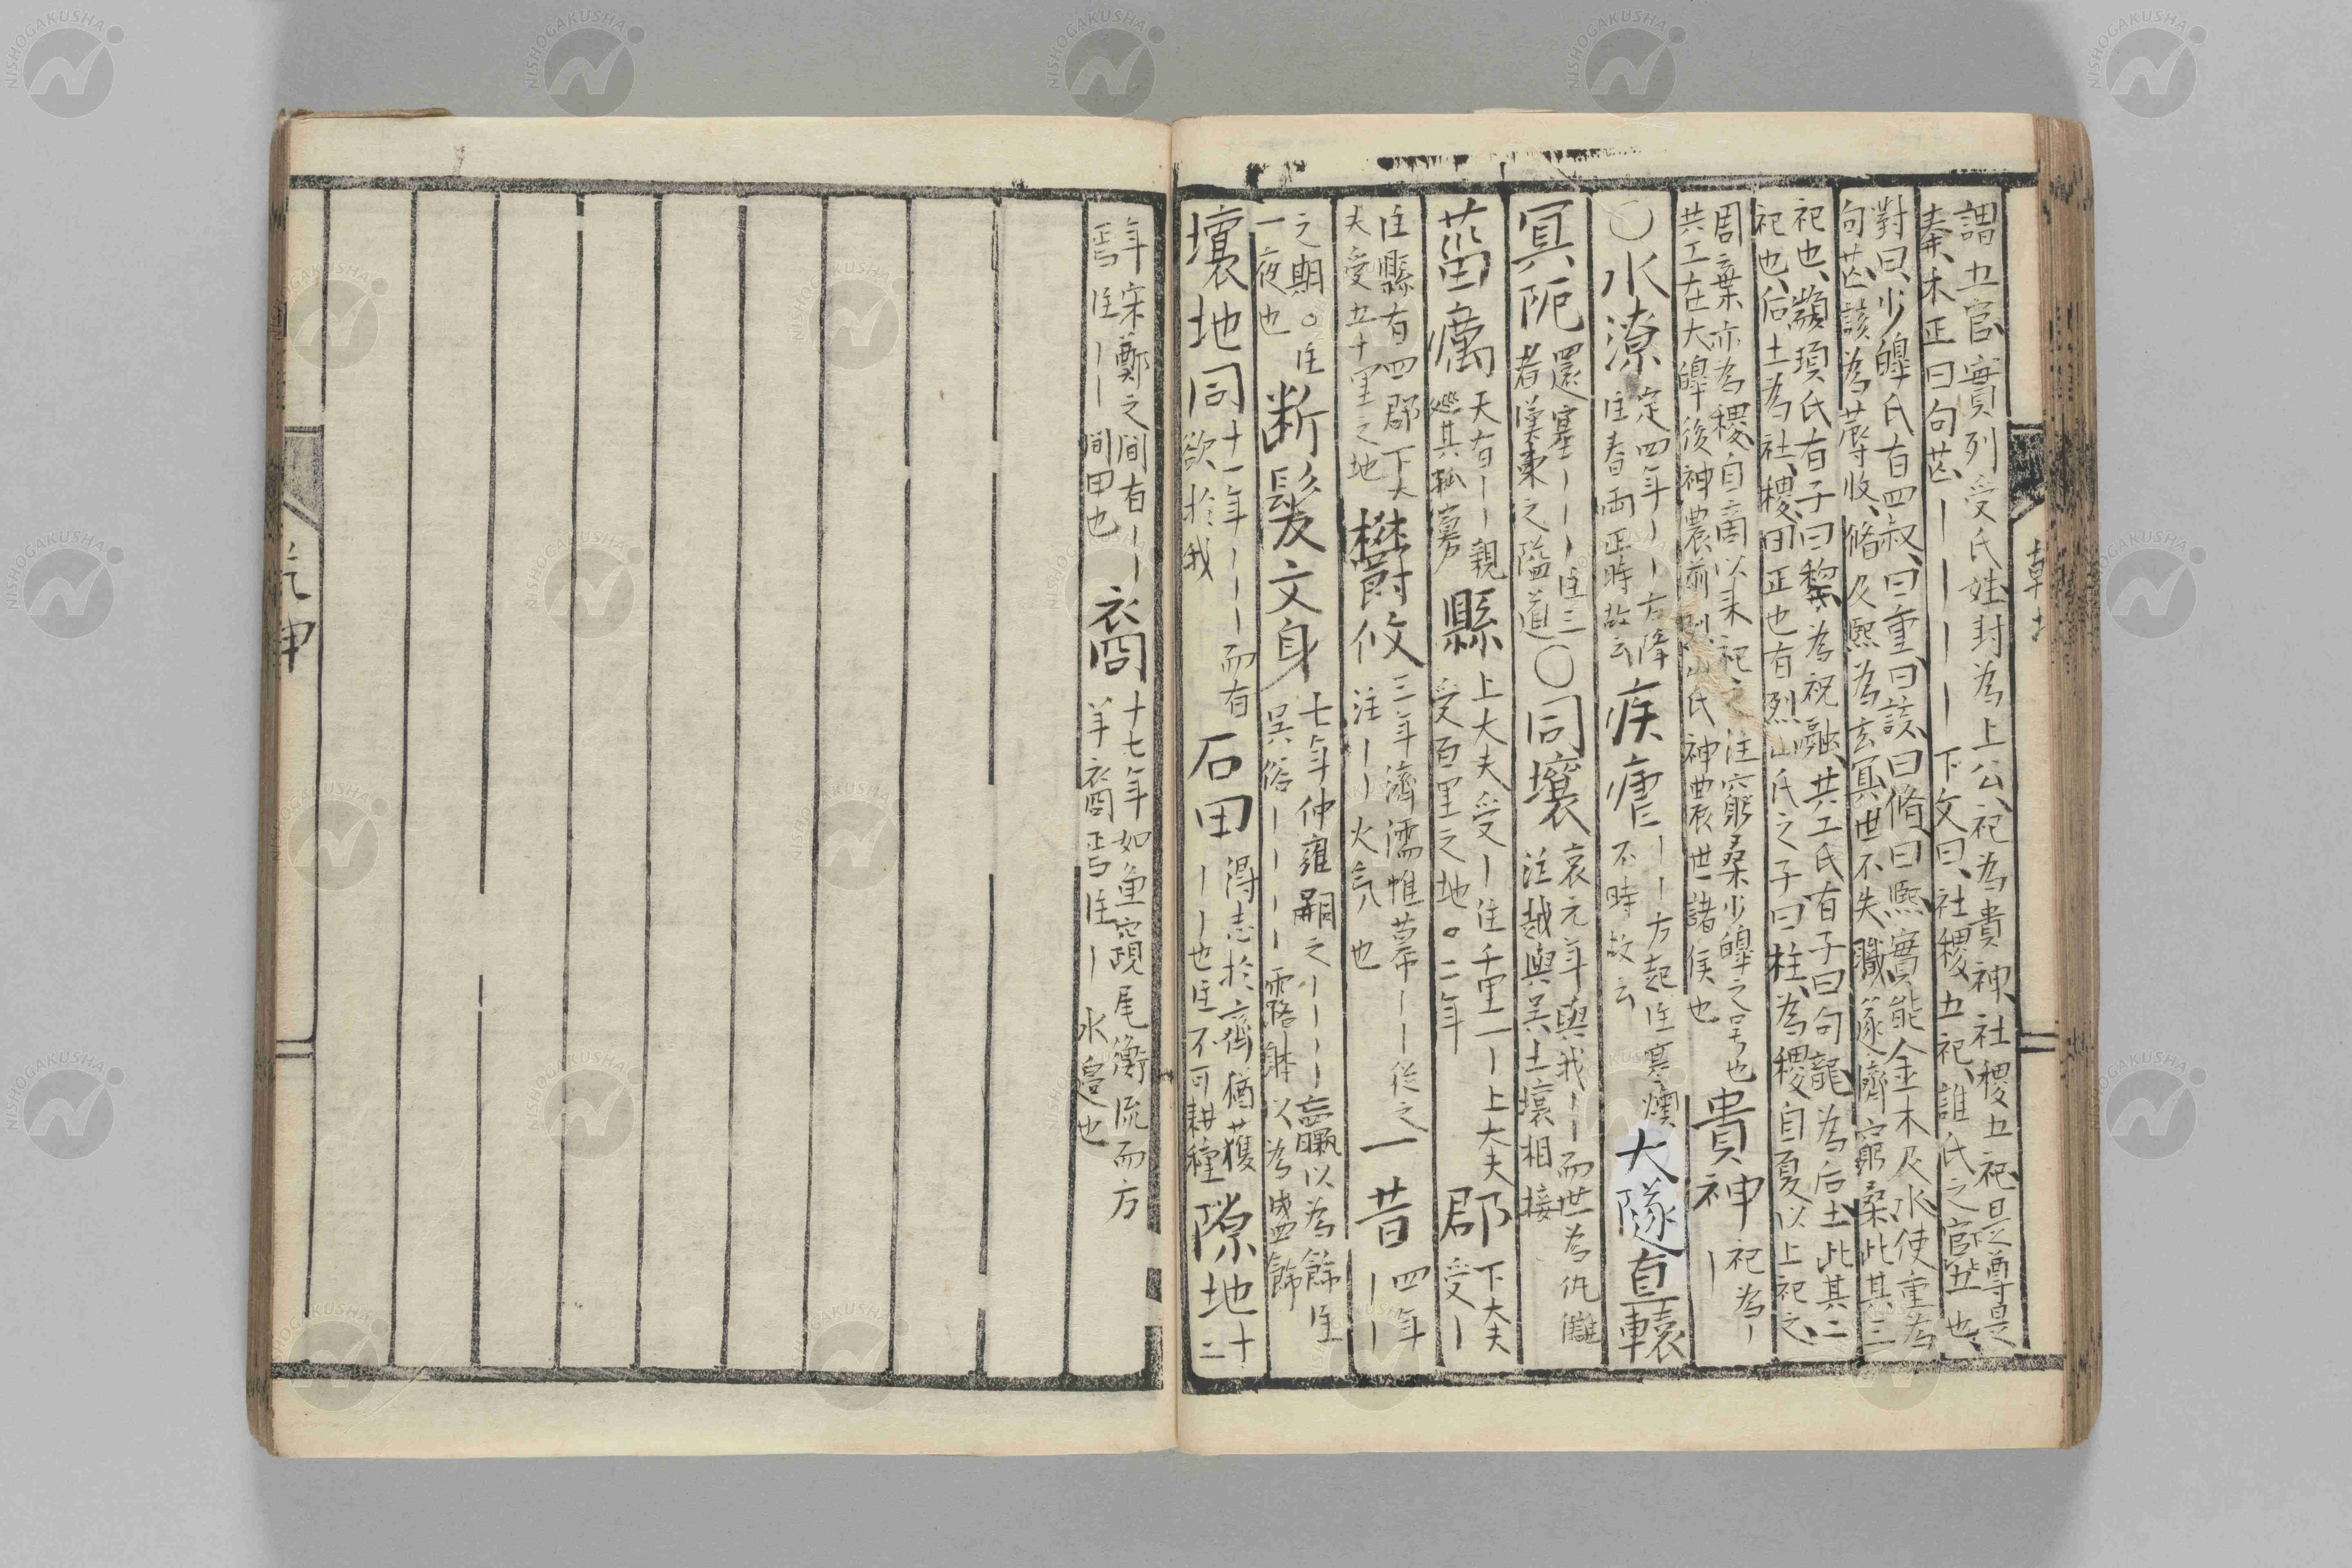 謂五官實列受氏姓封為上公祀為貴神社稷五祀是尊是
奏木正曰句芒丨丨丨丨下文曰社稷五祀誰氏之官五也
對曰少皥氏有四叔曰重曰該曰脩曰熙實能金木及水使重為
句芒該為蓐收脩及熙為玄冥世不失職遂濟窮桑此其三
祀也顓頊氏有子曰黎為祝融共工氏有子曰句龍為后土此其二
祀也后土為社稷田正也有烈山氏之子曰柱為稷自夏以上祀之
周棄亦為稷自商以来祀之注窮桑少皥之号也
共工在大皥後神農前烈山氏神農世諸侯也
貴神
祀為丨
丨
○水潦
定四年丨丨方降
注春雨正時故云
疾瘧
丨丨方起注寒燠
不時故云
大隧直轅
冥阨
還塞丨丨丨注三
者漢東之隘道
○同壤
哀元年與我丨丨而世為仇讎
注越與吳土壤相接
菑癘
天有丨丨親
巡其孤寡
縣
上大夫受丨注千里一丨上大夫
受百里之地○二年
郡
下大夫
受丨
注縣有四郡下大
夫受五十里之地
欝攸
三年濟濡帷幕丨丨從之
注丨丨火氣也
一昔
四年
丨丨
之期○注
一夜也
断髮文身
七年仲雍嗣之丨丨丨丨臝以為餙注
吳俗丨丨丨丨露躰以為盛餙
壤地同
十一年丨丨丨而有
欲於我
石田
得志於齊猶獲
丨丨也注不可耕種
隙地
十
二
年宋鄭之間有丨丨
焉注丨丨間田也
裔
十七年如魚竀尾衡流而方
羊裔焉注丨水邉也